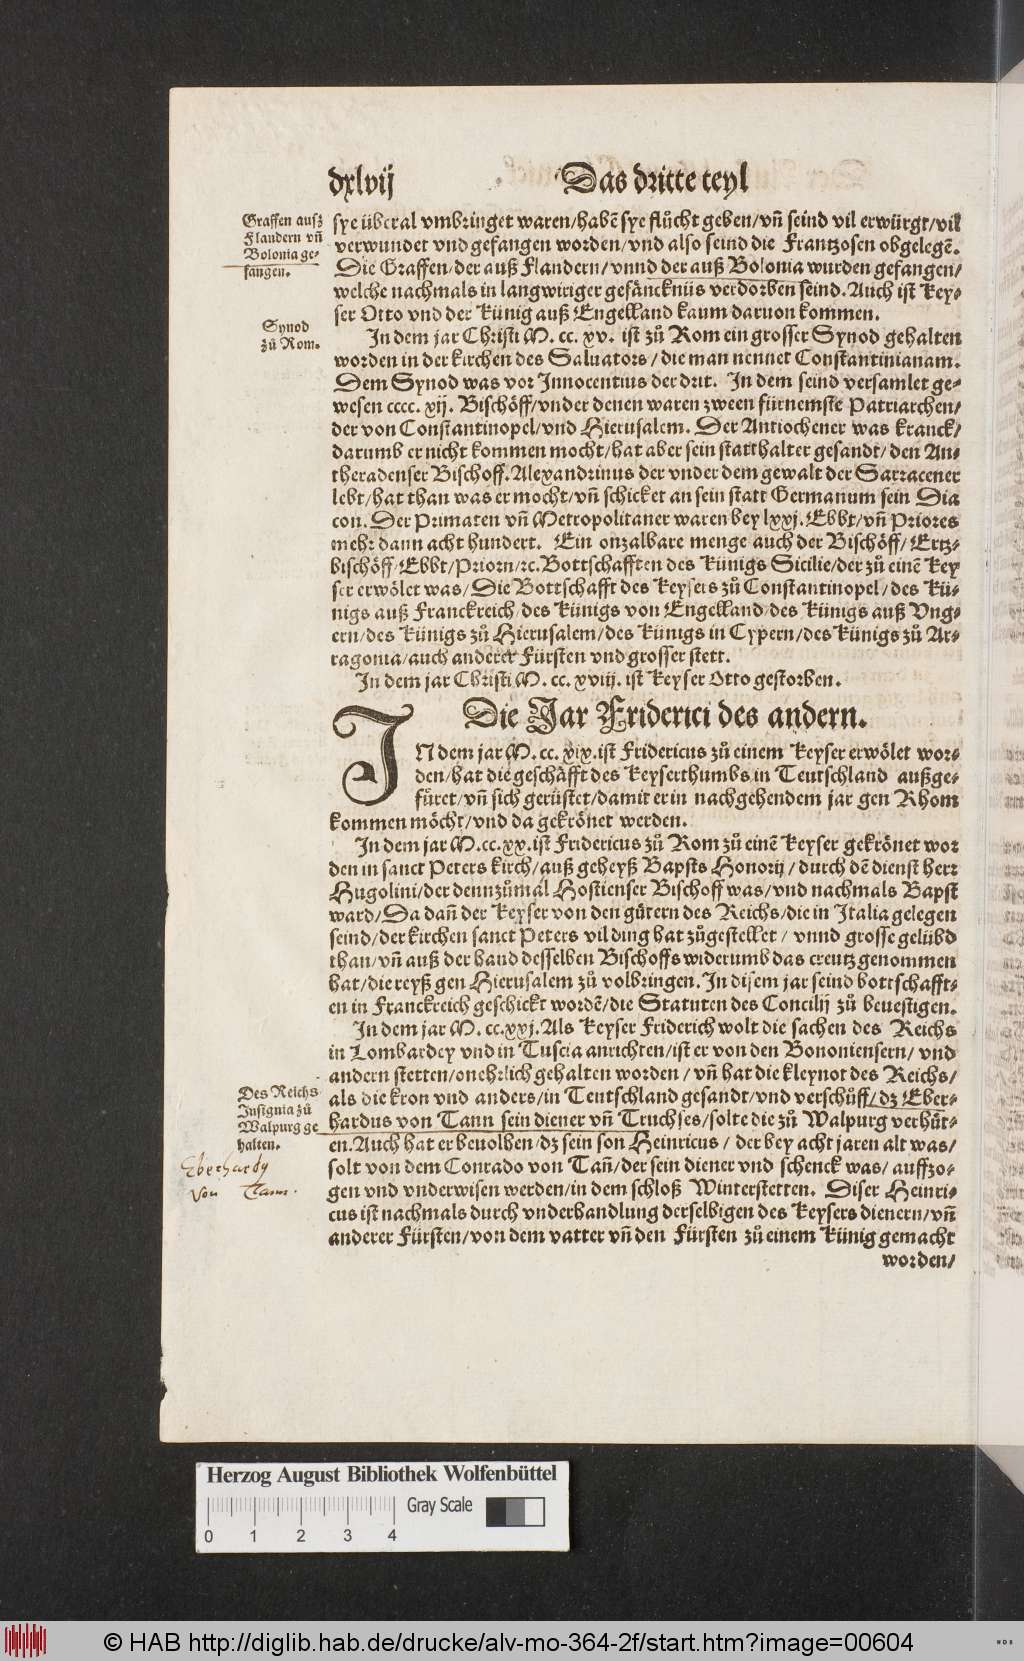 dxlvij Das dritte teyl
Graffen aufz
Flandern vñ
Bolonia ge-
fangen.
sye überal vmbringet waren/habē sye flücht geben/vñ seind vil erwürgt/vil
verwundet vnd gefangen worden/vnd also seind die Frantzosen obgelegē.
Die Graffen/der auß Flandern/vnnd der auß Bolonia wurden gefangen/
welche nachmals in langwiriger gefäncknüs verdorben seind. Auch ist Key-
ser Otto vnd der Künig auß Engelland kaum daruon kommen.
Synod
zů Rom.
In dem jar Christi M. cc. xv. ist zů Rom ein grosser Synod gehalten
worden in der kirchen des Saluators/die man nennet Constantinianam.
Dem Synod was vor Innocentius der drit. In dem seind versamlet ge-
wesen cccc. xij. Bischöff/vnder denen waren zween fürnemste Patriarchen/
der von Constantinopel/vnd Hierusalem. Der Antiochener was kranck/
darumb er nicht kommen mocht/hat aber sein statthalter gesandt/den An-
theradenser Bischoff. Alexandrinus der vnder dem gewalt der Sarracener
lebt/hat than was er mocht/vñ schicket an sein statt Germanum sein Dia
con. Der Primaten vñ Metropolitaner waren bey lxxj. Ebbt/vñ Priores
mehr dann acht hundert. Ein onzalbare menge auch der Bischöff/Ertz-
bischöff/Ebbt/Priorn/ꝛc. Bottschafften des Künigs Sicilie/der zů einē Key
ser erwölet was/Die Bottschafft des Keysers zů Constantinopel/des Kü-
nigs auß Franckreich/des Künigs von Engelland/des Künigs auß Vng-
ern/des Künigs zů Hierusalem/des Künigs in Cypern/des Künigs zů Ar-
ragonia/auch anderer Fürsten vnd grosser stett.
In dem jar Christi M. cc. xviij. ist Keyser Otto gestorben.
Die Jar Friderici des andern.
IN dem jar M. cc. xix. ist Fridericus zů einem Keyser erwölet wor-
den/hat die geschäfft des Keyserthumbs in Teutschland außge-
füret/vñ sich gerüstet/damit er in nachgehendem jar gen Rhom
kommen möcht/vnd da gekrönet werden.
In dem jar M.cc.xx. ist Fridericus zů Rom zů einē Keyser gekrönet wor
den in sanct Peters kirch/auß geheyß Bapsts Honorij/durch dē dienst herr
Hugolini/der dennzůmal Hostienser Bischoff was/vnd nachmals Bapst
ward/Da dañ der Keyser von den gütern des Reichs/die in Italia gelegen
seind/der kirchen sanct Peters vil ding hat zůgestellet/vnnd grosse gelübd
than/vñ auß der hand desselben Bischoffs widerumb das creutz genommen
hat/die reyß gen Hierusalem zů volbringen. In disem jar seind bottschafft-
en in Franckreich geschickt wordē/die Statuten des Concilij zů beuestigen.
In dem jar M. cc.xxj. Als Keyser Friderich wolt die sachen des Reichs
in Lombardey vnd in Tuscia anrichten/ist er von den Bononiensern/vnd
andern stetten/onehrlich gehalten worden/vñ hat die kleynot des Reichs/
Des Reichs
Insignia zů
Walpurg ge
halten.
als die kron vnd anders/in Teutschland gesandt/vnd verschůff/dz Eber-
hardus von Tann sein diener vñ Truchses/solte die zů Walpurg verhüt-
en. Auch hat er beuolhen/dz sein son Heinricus/der bey acht jaren alt was/
Eberhardy
von Tann.
solt von dem Conrado von Tañ/der sein diener vnd schenck was/auffzo-
gen vnd vnderwisen werden/in dem schloß Winterstetten. Diser Heinri-
cus ist nachmals durch vnderhandlung derselbigen des Keysers dienern/vñ
anderer Fürsten/von dem vatter vñ den Fürsten zů einem Künig gemacht
worden/
Herzog August Bibliothek Wolfenbüttel
Gray Scale
0 1 2 3 4
© HAB http://diglib.hab.de/drucke/alv-mo-364-2f/start.htm?image=00604